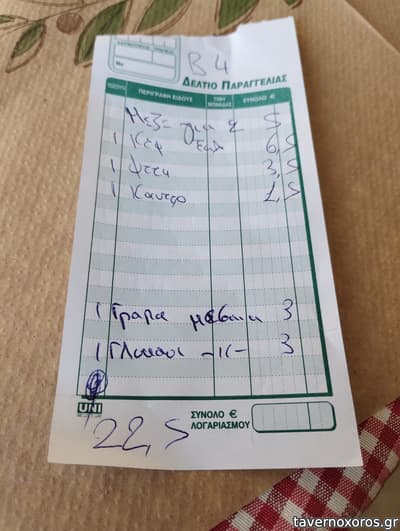 Νο
Β 4
ΔΕΛΤΙΟ ΠΑΡΑΓΓΕΛΙΑΣ
ΠΕΡΙΓΡΑΦΗ ΕΙΔΟΥΣ ΤΙΜΗ ΜΟΝΑΔΑΣ ΣΥΝΟΛΟ €
Μεζε για 2 5
1 Κεφ 6,5
1 Φετα 3,5
1 Καυτρο 1,5
1 Γραβα μεσαια 3
1 -11- 3
UNI
ΣΥΝΟΛΟ €
ΛΟΓΑΡΙΑΣΜΟΥ
22,5
tavernoxoros.gr